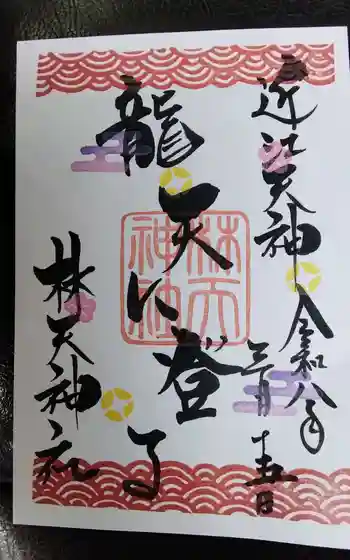 近江天神
令和八年
三月十五日
龍天に登る
林天神社
林天神社